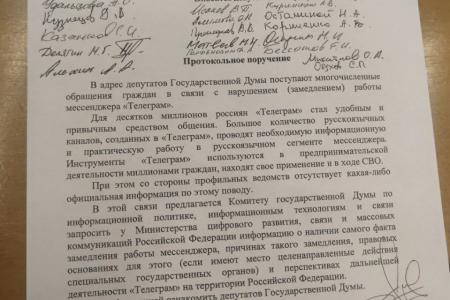 Удальцова А.О.
Кузнецов
Казаков С.И.
Делягин М.Г.
Алехин А.А.
Исаков В.П.
Алимова О.Н.
Матвеев М.Н.
Останина Н.А.
Корниенко А.В.
Бессонов Е.И.
Михайлов О.А.
Обухов С.П.
Протокольное поручение
В адрес депутатов Государственной Думы поступают многочисленные
обращения граждан в связи с нарушением (замедлением) работы
мессенджера «Телеграм».
Для десятков миллионов россиян «Телеграм» стал удобным и
привычным средством общения. Большое количество русскоязычных
каналов, созданных в «Телеграм», проводят необходимую информационную
и практическую работу в русскоязычном сегменте мессенджера.
Инструменты «Телеграм» используются в предпринимательской
деятельности миллионами граждан, находят свое применение и в ходе СВО.
При этом со стороны профильных ведомств отсутствует какая-либо
официальная информация по этому поводу.
В этой связи предлагается Комитету Государственной Думы по
информационной политике, информационным технологиям и связи
запросить у Министерства цифрового развития, связи и массовых
коммуникаций Российской Федерации информацию о наличии самого факта
замедления работы мессенджера, причинах такого замедления, правовых
основаниях для этого (если имеют место целенаправленные действия
специальных государственных органов) и перспективах дальнейшей
деятельности «Телеграм» на территории Российской Федерации.
ознакомить депутатов Государственной Думы.